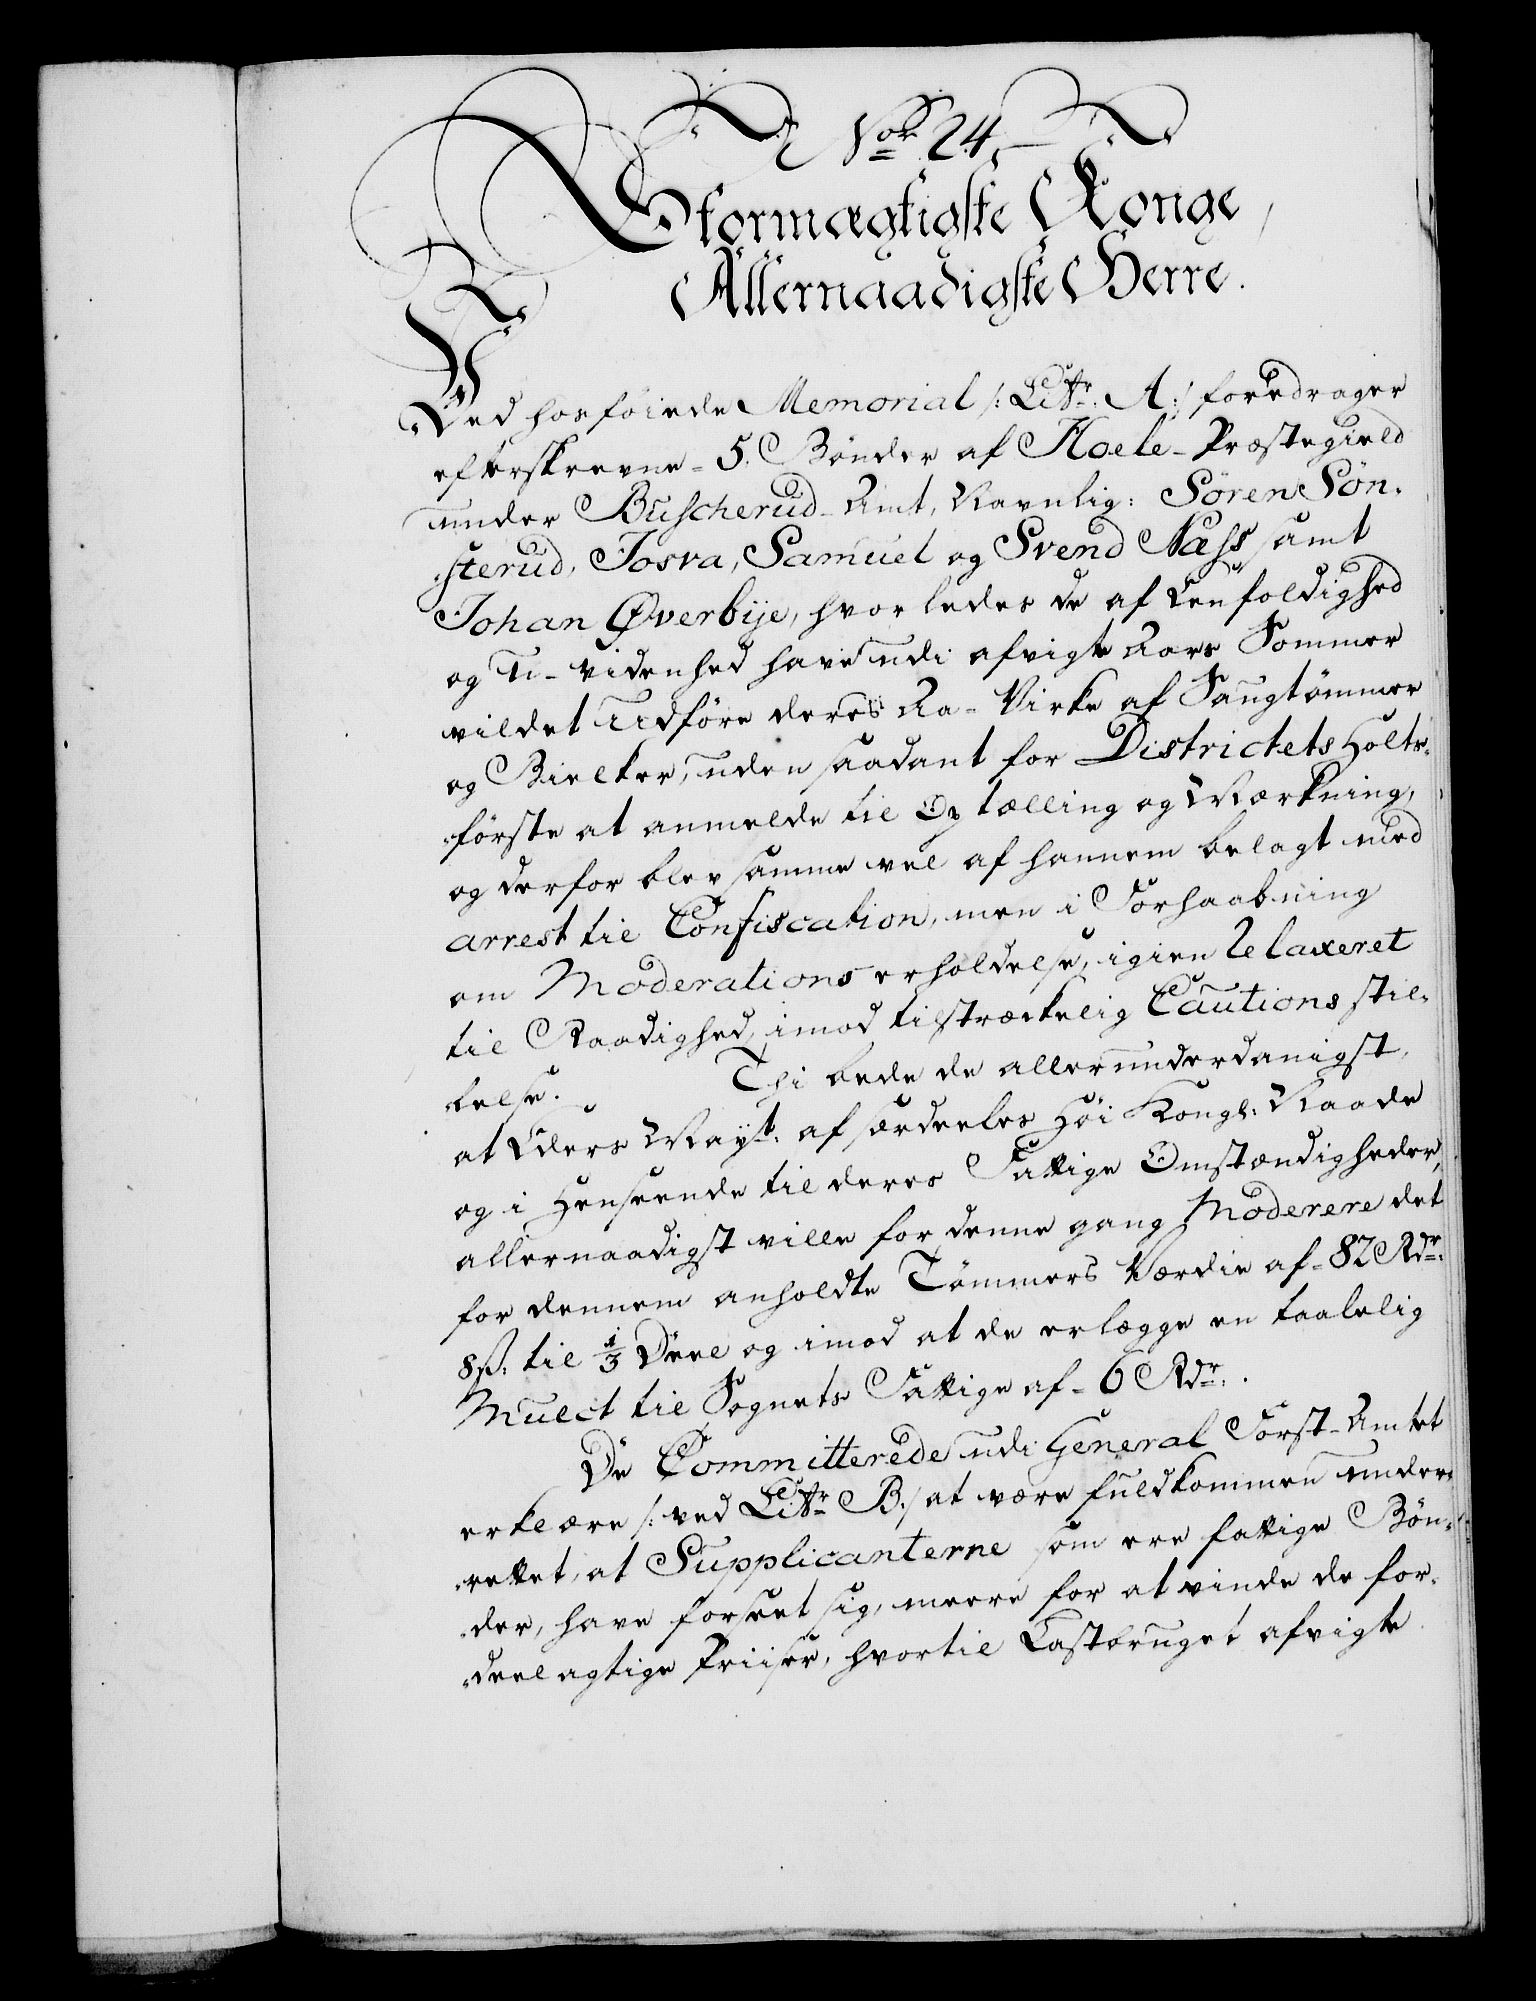 No 24.
Stormægtigste Konge,
Allernaadigste Herre.
Ved hosføiede Memorial /: Littr: A:/ foredrager
efterskrevne 5. Bönder af Hoele-Præstegield
under Buscherud-Amt, Navnlig: Sören Sön-
sterud, Josva, Samuel og Svend Næss samt
Johan Øverbÿe, hvorledes de af Eenfoldighed
og U-videnhed have udi afvigte Aars Sommer
vildet udföre deres Aa-Virke af Saugtömmer
og Bielker, uden saadant for Districtets Holts-
förste at anmelde til Optælling og Mærkning,
og derfor blev samme vel af hannem belagt med
arrest til Confiscation, men i Forhaabning
om Moderations erholdelse, igien relaxeret
til Raadighed, imod tilstrækkelig Cautions stil-
lelse. Thi bede de allerunderdanigst,
at Eders Mayt: af særdeeles Höi Kongl: Naade
og i Henseende til deres Fattige Omstændigheder,
allernaadigst ville for denne gang Moderere det
for dennem anholdte Tömmers Værdie af 82 Rdr:
8ß: til 1/3 Deel og imod at de erlægge en taalelig
Mulct til Sognets Fattige af 6 Rdr:.
De Committerede udi General Forst-Amtet
erklære /: ved Littr B:/ at være fuldkommen under-
rettet, at Supplicanterne som ere fattige Bön-
der, have forseet sig, meere for at vinde de for-
deelagtige Priiser, hvortil Lastbruget afvigte